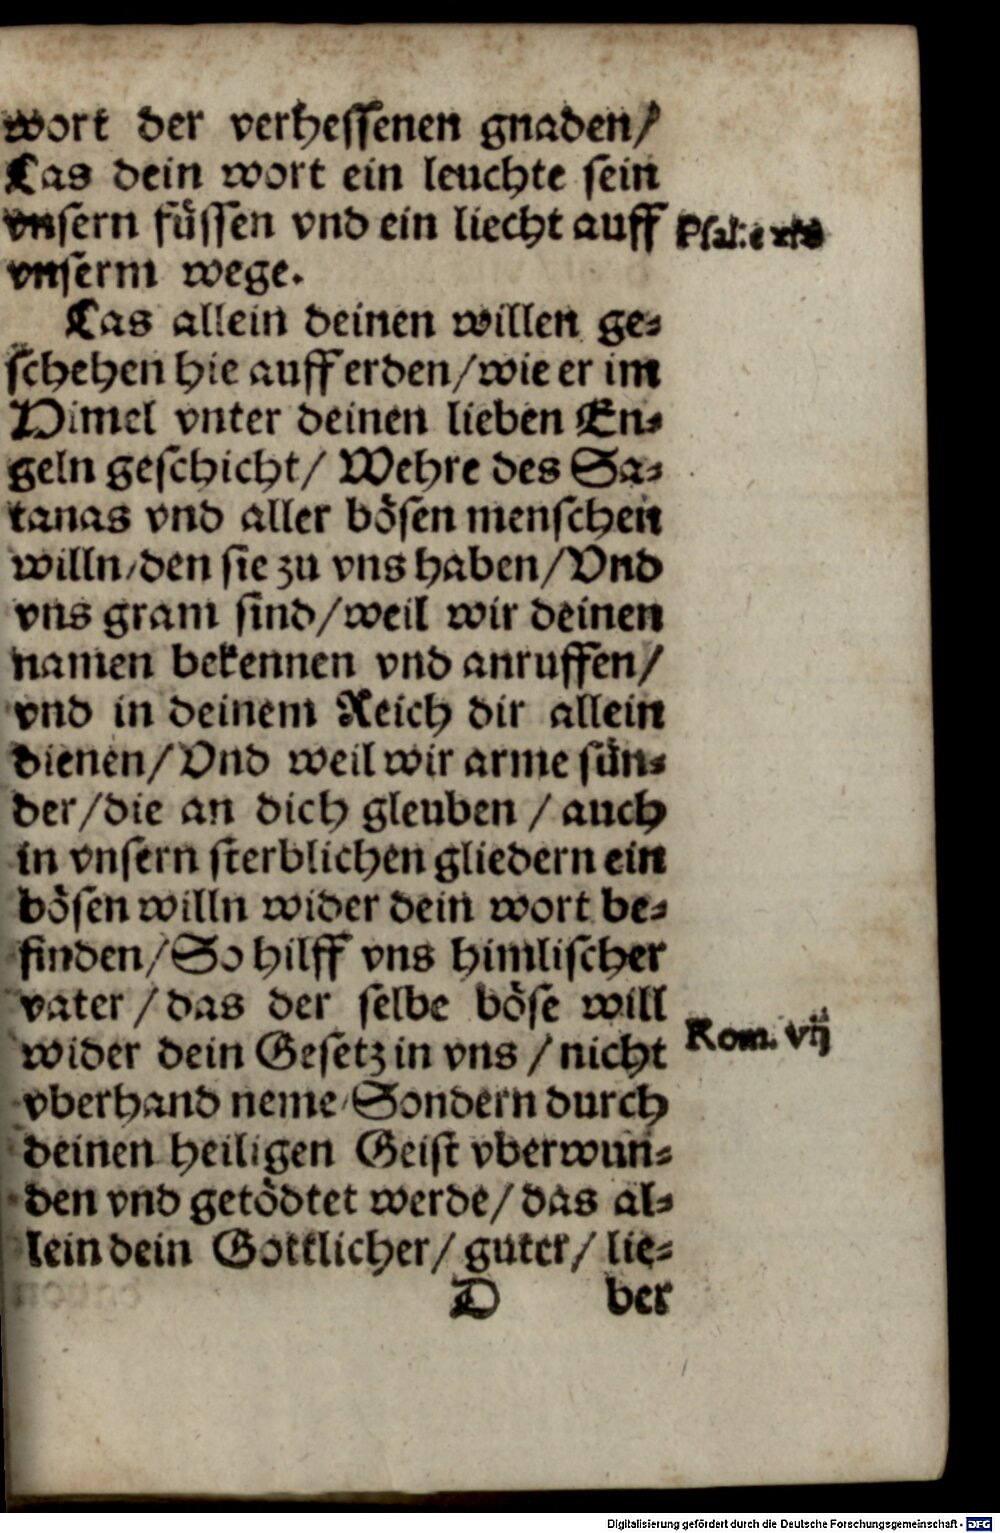 wort der verheſſenen gnaden/
Las dein wort ein leuchte ſein
vnſern füſſen vnd ein liecht auff
vnſerm wege.
Las allein deinen willen ge⸗
ſchehen hie auff erden/wie er im
Himel vnter deinen lieben En⸗
geln geſchicht/ Wehre des Sa⸗
tanas vnd aller böſen menſchen
willn/den ſie zu vns haben/Vnd
vns gram ſind/weil wir deinen
namen bekennen vnd anruffen/
vnd in deinem Reich dir allein
dienen/Vnd weil wir arme ſün⸗
der/die an dich gleuben / auch
in vnſern ſterblichen gliedern ein
böſen willn wider dein wort be⸗
finden/So hilff vns himliſcher
vater / das der ſelbe böſe will
wider dein Geſetz in vns / nicht
vberhand neme/Sondern durch
deinen heiligen Geiſt vberwun⸗
den vnd getödtet werde/ das al⸗
lein dein Gottlicher/ guter/ lie⸗
D ber
Pſal.
Rom. vij
Digitalisierung gefördert durch die Deutsche Forschungsgemeinschaft - DFG